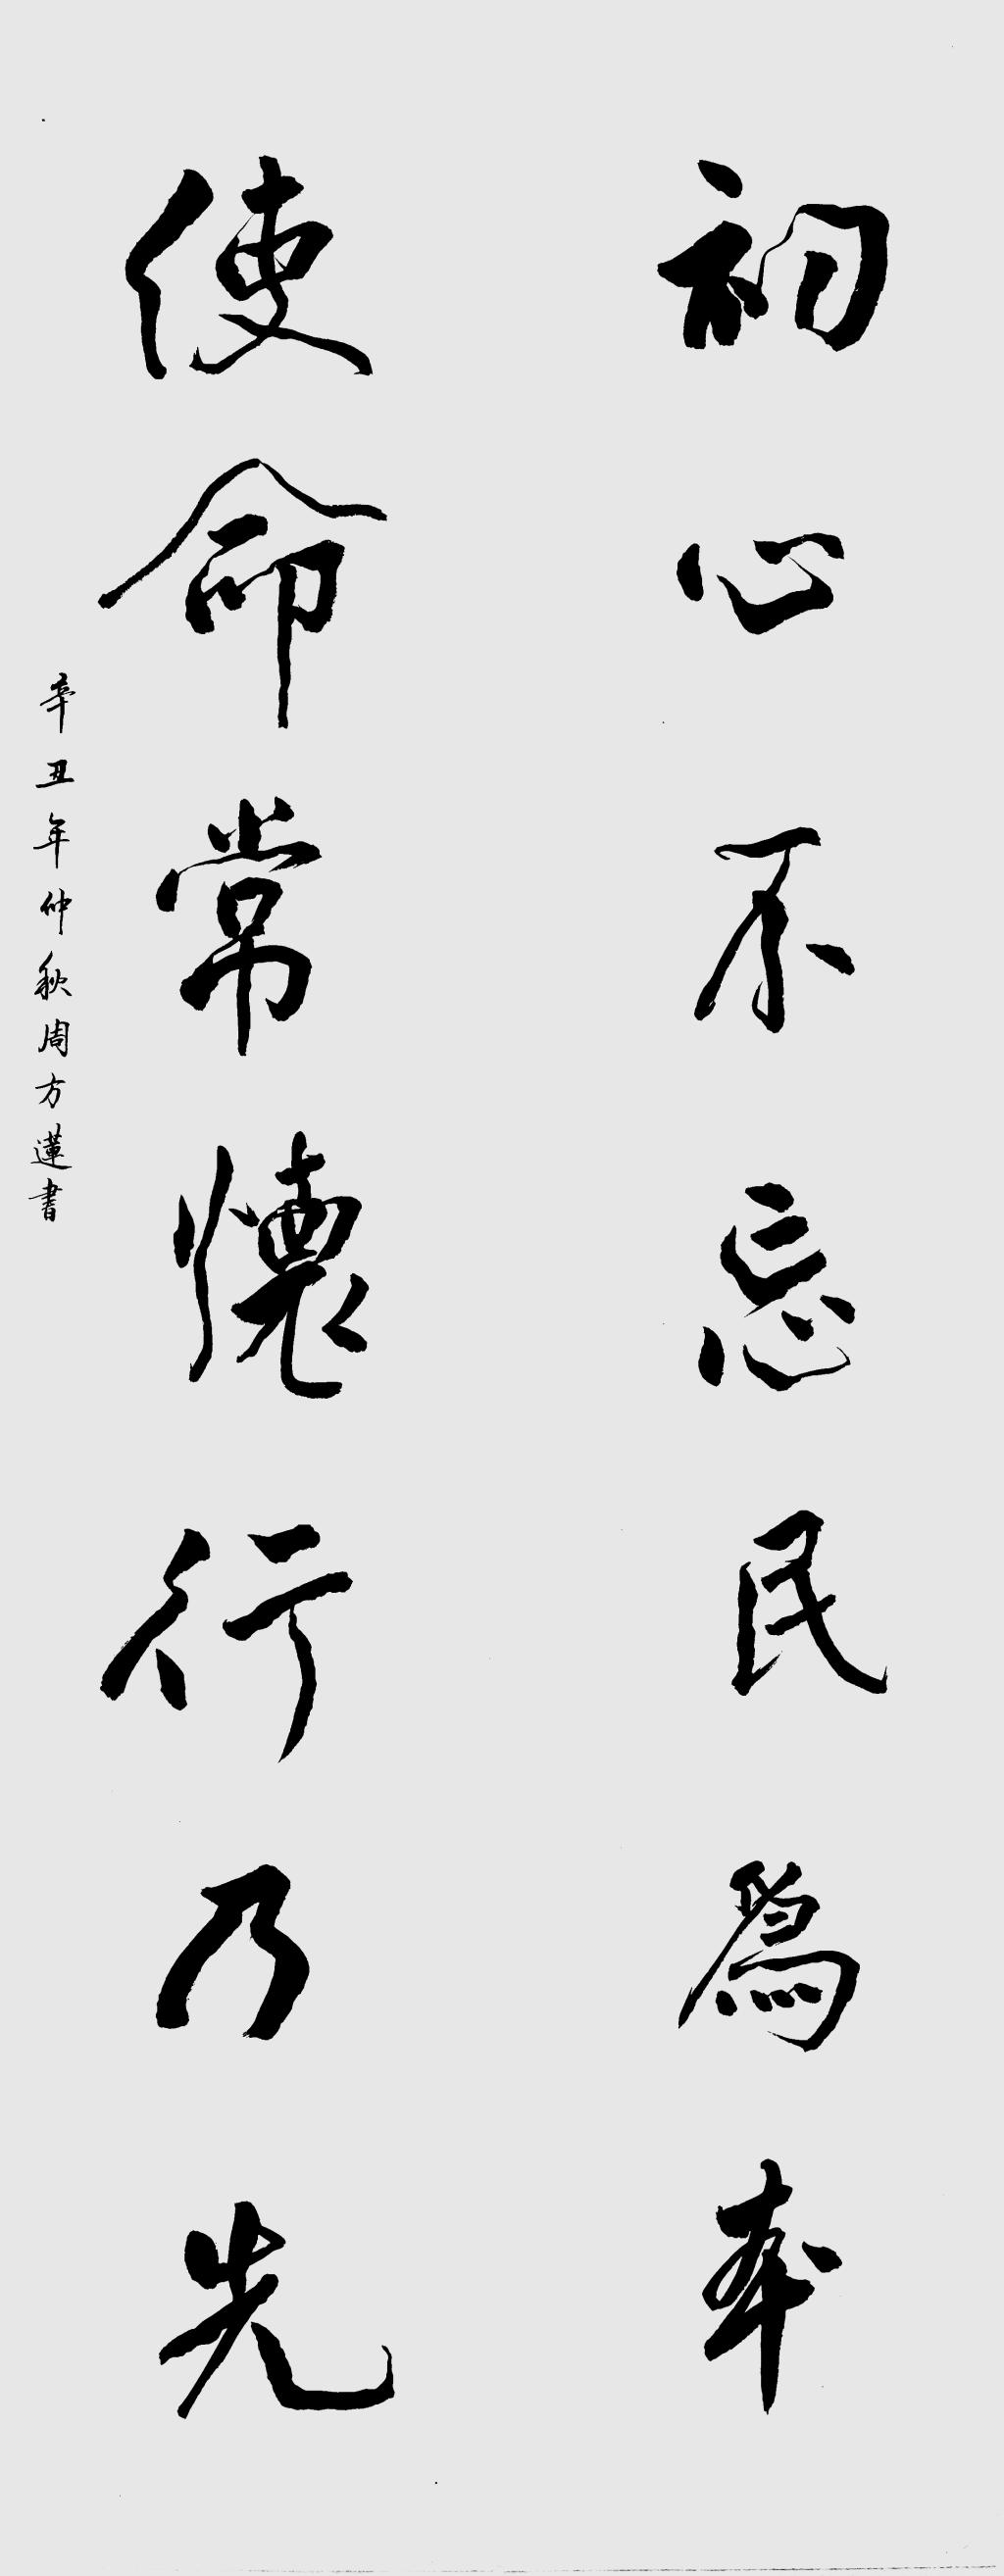 初心不忘民為本
使命常懷行乃先
辛丑年仲秋周方蓮書